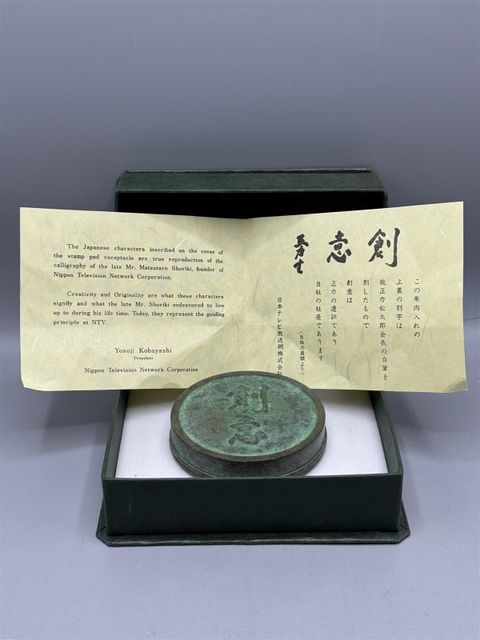 The Japanese characters inscribed on the cover of
the stamp pad receptacle are true reproduction of the
calligraphy of the late Mr. Matsutaro Shoriki, founder of
Nippon Television Network Corporation.
Creativity and Originality are what these characters
signify and what the late Mr. Shoriki endeavored to live
up to during his life time. Today, they represent the guiding
principle at NTV.
Yosoji Kobayashi
President
Nippon Television Network Corporation
創意
この朱肉入れの
上蓋の刻字は
故正力松太郎会長の自筆を
刻したもので
創意は
正力の遺訓であり
当社の社是であります
日本テレビ放送網株式会社
創意